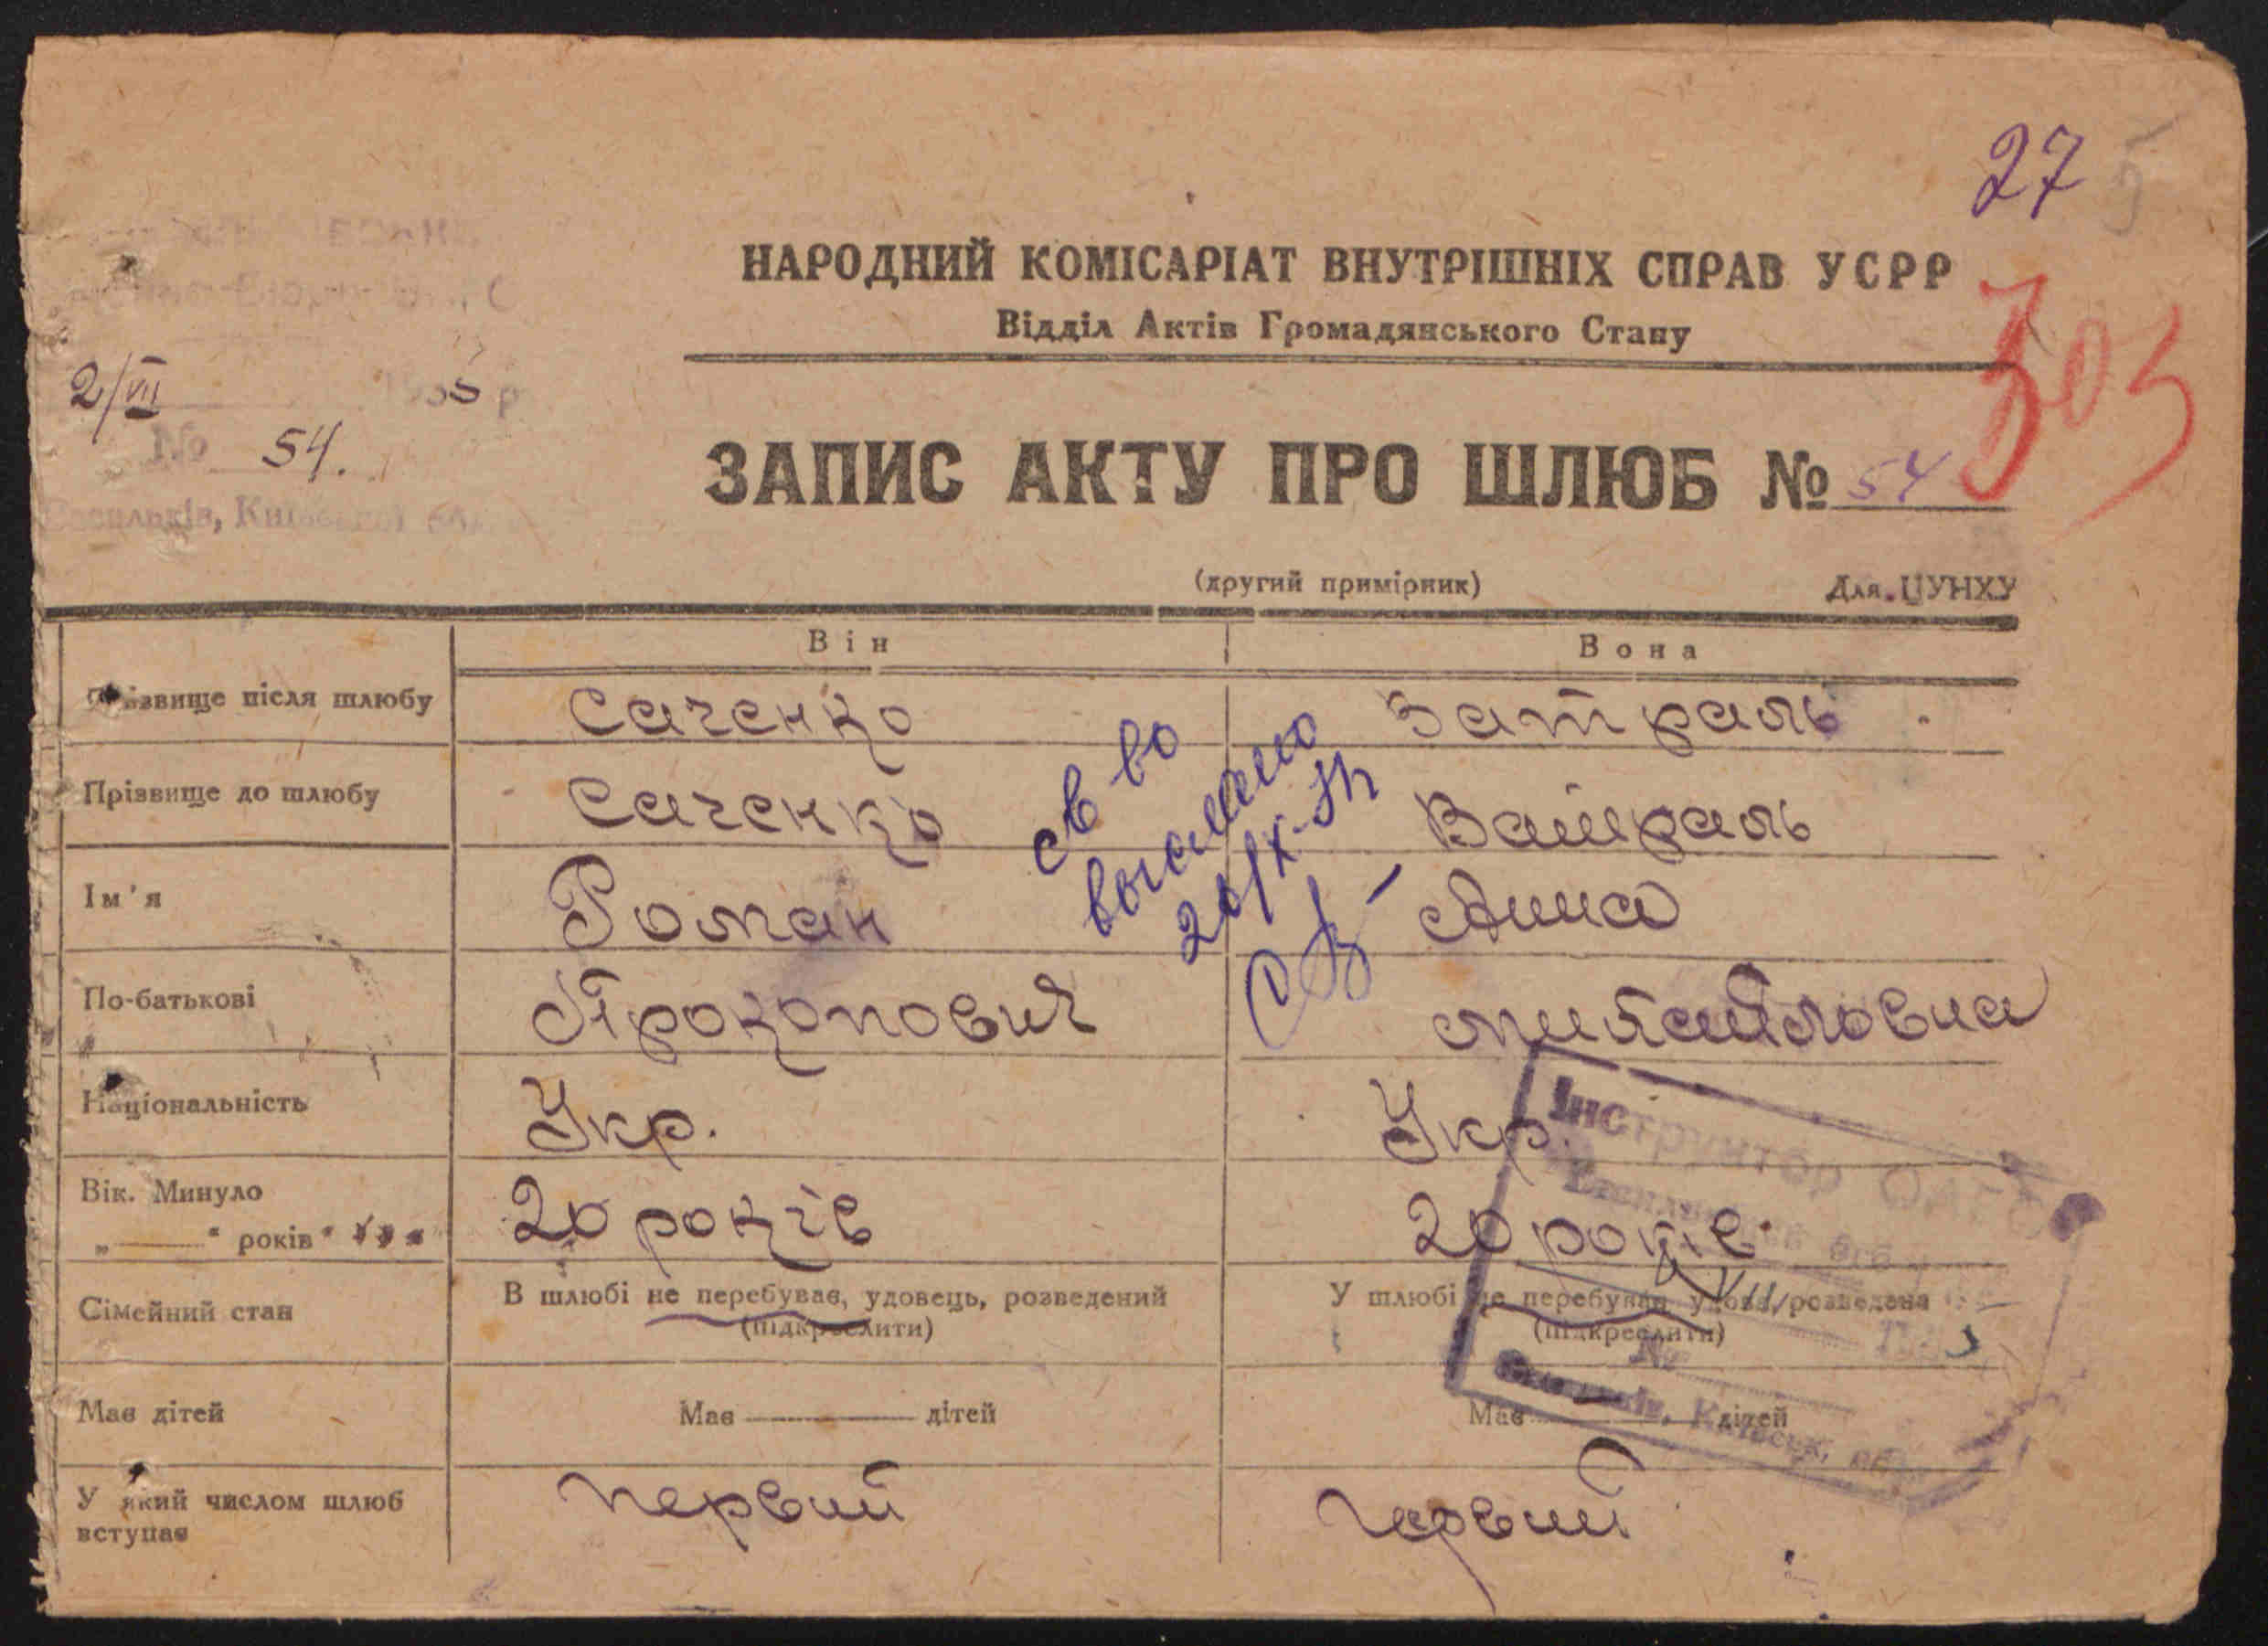 27
НАРОДНИЙ КОМІСАРІАТ ВНУТРІШНІХ СПРАВ УСРР
Відділ Актів Громадянського Стану
303
2/VII 1935 р
№ 54.
Васильків, Київської обл.
ЗАПИС АКТУ ПРО ШЛЮБ № 54
(другий примірник)
Для ЦУНХУ
Він Вона
Прізвище після шлюбу Саченко Затраль
Прізвище до шлюбу Саченко Ватраль
Ім'я Роман Анна
св во
выслано
20/X-
По-батькові Прокопович Михайловна
Національність Укр. Укр.
Вік. Минуло
„ “ років 20 років 20 років
Сімейний стан В шлюбі не перебував, удовець, розведений У шлюбі не перебувала, удова, розведена
(підкреслити) (підкреслити)
Має дітей Має дітей Має дітей
У який числом шлюб
вступає первий первий
Інструктор ОАГС
№
Київськ, об